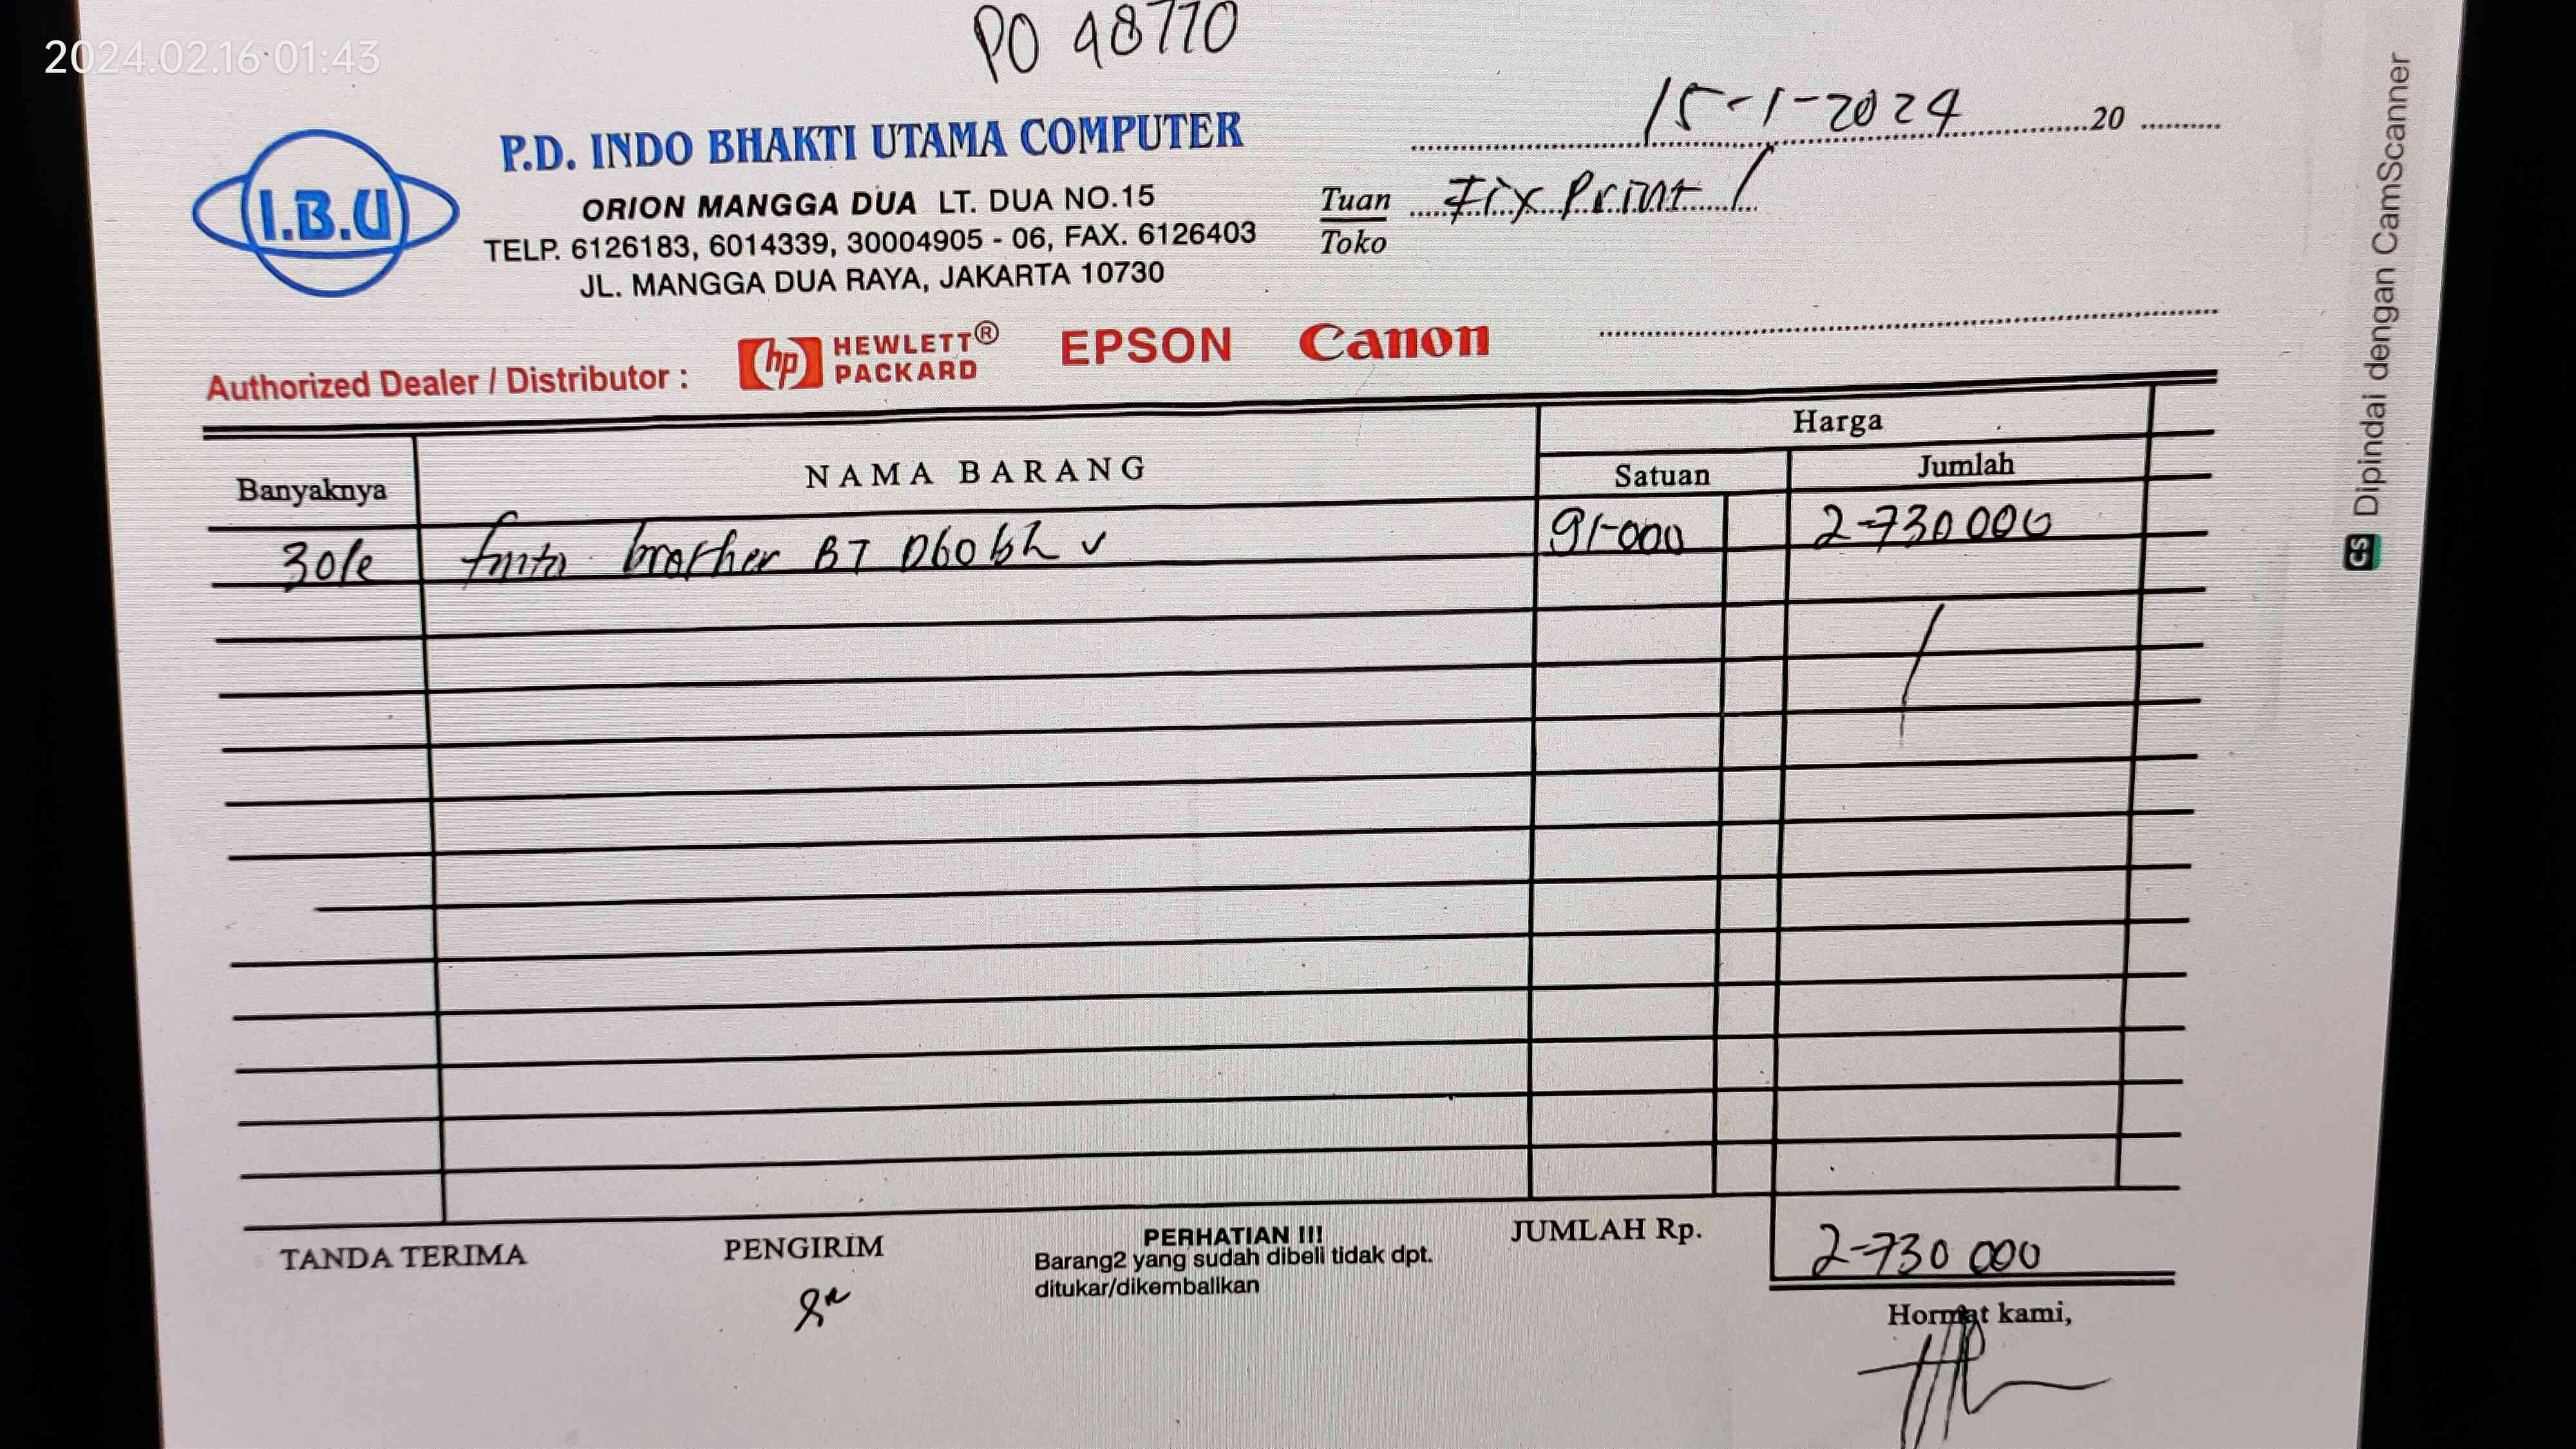 PO 48770
2024.02.16 01:43
15-1-2024 20
I.B.U
P.D. INDO BHAKTI UTAMA COMPUTER
ORION MANGGA DUA LT. DUA NO.15
TELP. 6126183, 6014339, 30004905 - 06, FAX. 6126403
JL. MANGGA DUA RAYA, JAKARTA 10730
Tuan Fix Print
Toko
Authorized Dealer / Distributor : hp HEWLETT® PACKARD EPSON Canon
Banyaknya NAMA BARANG Harga
Satuan Jumlah
30 tinta brother BT D60 bk 91-000 2-730000
TANDA TERIMA PENGIRIM
PERHATIAN !!!
Barang2 yang sudah dibeli tidak dpt.
ditukar/dikembalikan
JUMLAH Rp. 2-730 000
Hormat kami,
CS Dipindai dengan CamScanner